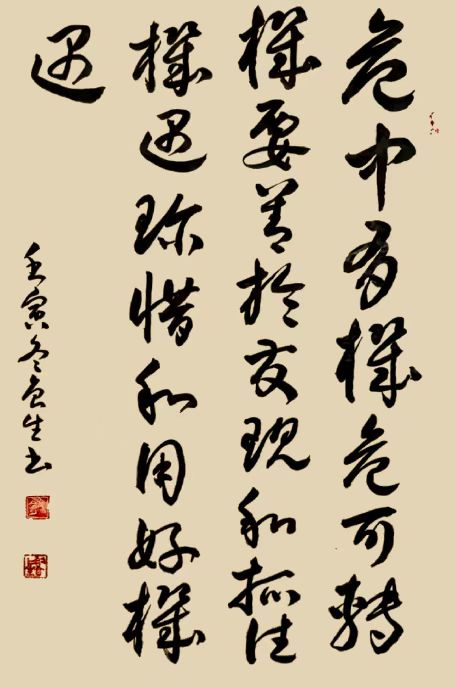 危中有機危可轉
機要善於发现和抓住
機遇珍惜和用好機
遇
壬寅冬良生书